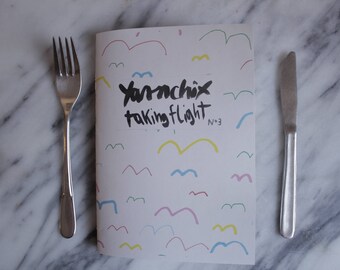 Yarnchix
taking flight
Nº3